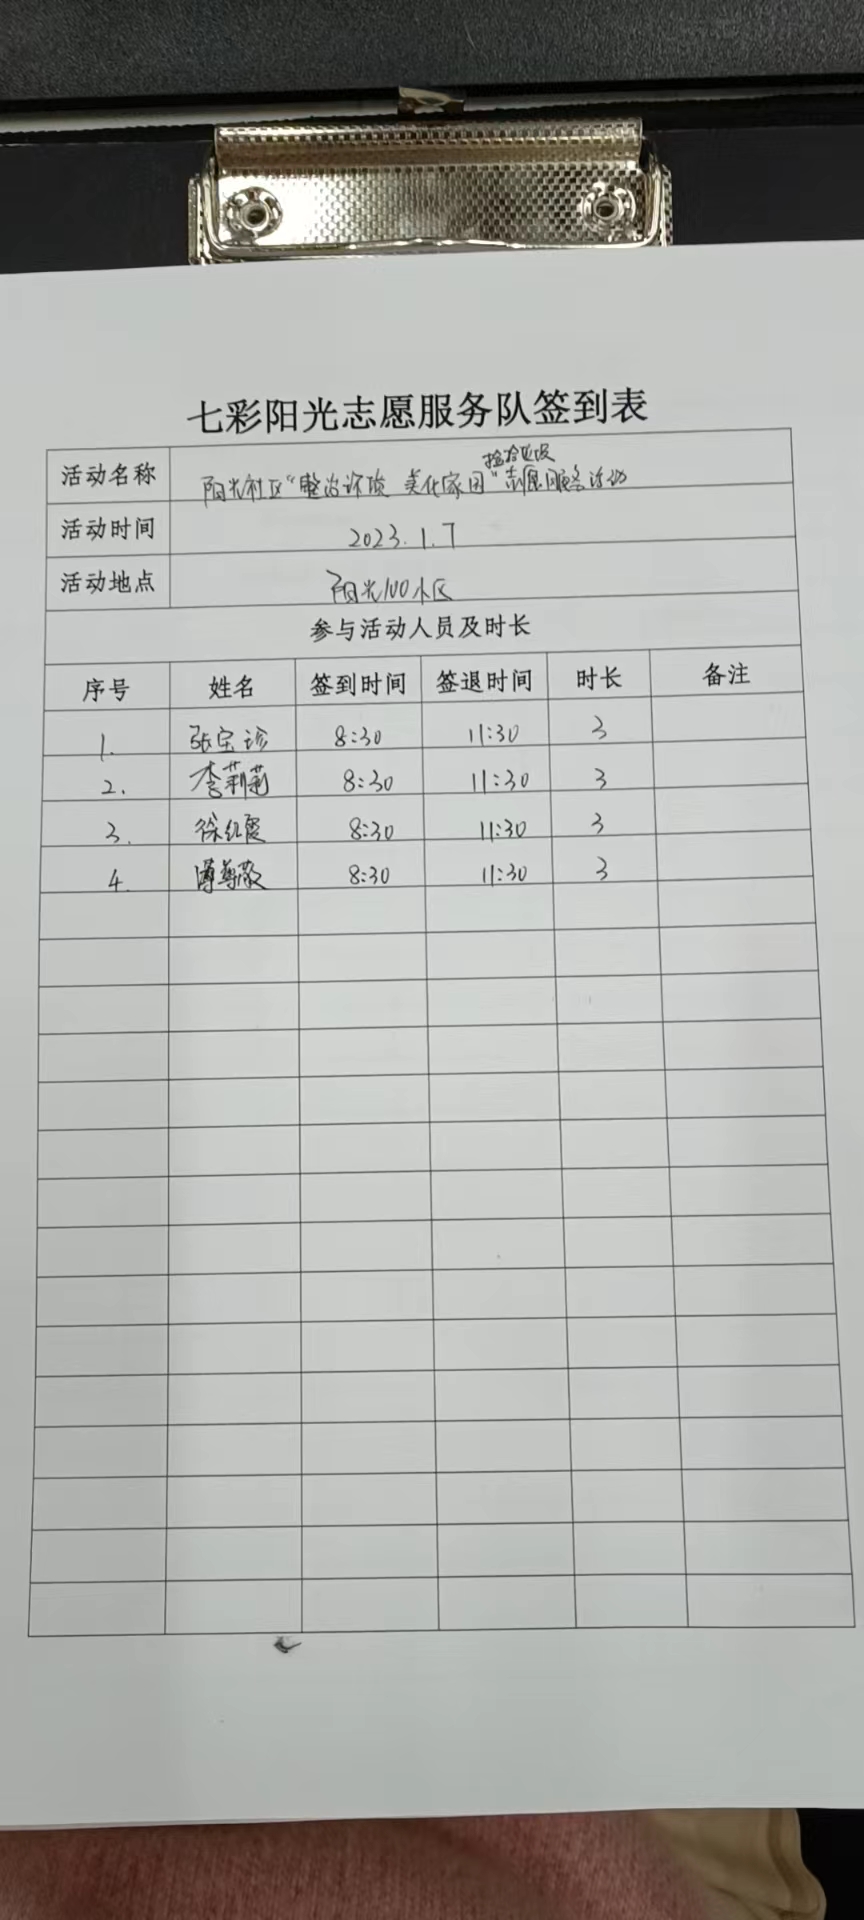 七彩阳光志愿服务队签到表
活动名称 阳光社区“整治环境 美化家园”志愿服务活动
捡拾垃圾
活动时间 2023.1.7
活动地点 阳光100小区
参与活动人员及时长
序号 姓名 签到时间 签退时间 时长 备注
1. 张宝珍 8:30 11:30 3
2. 李莉莉 8:30 11:30 3
3. 徐红霞 8:30 11:30 3
4. 8:30 11:30 3